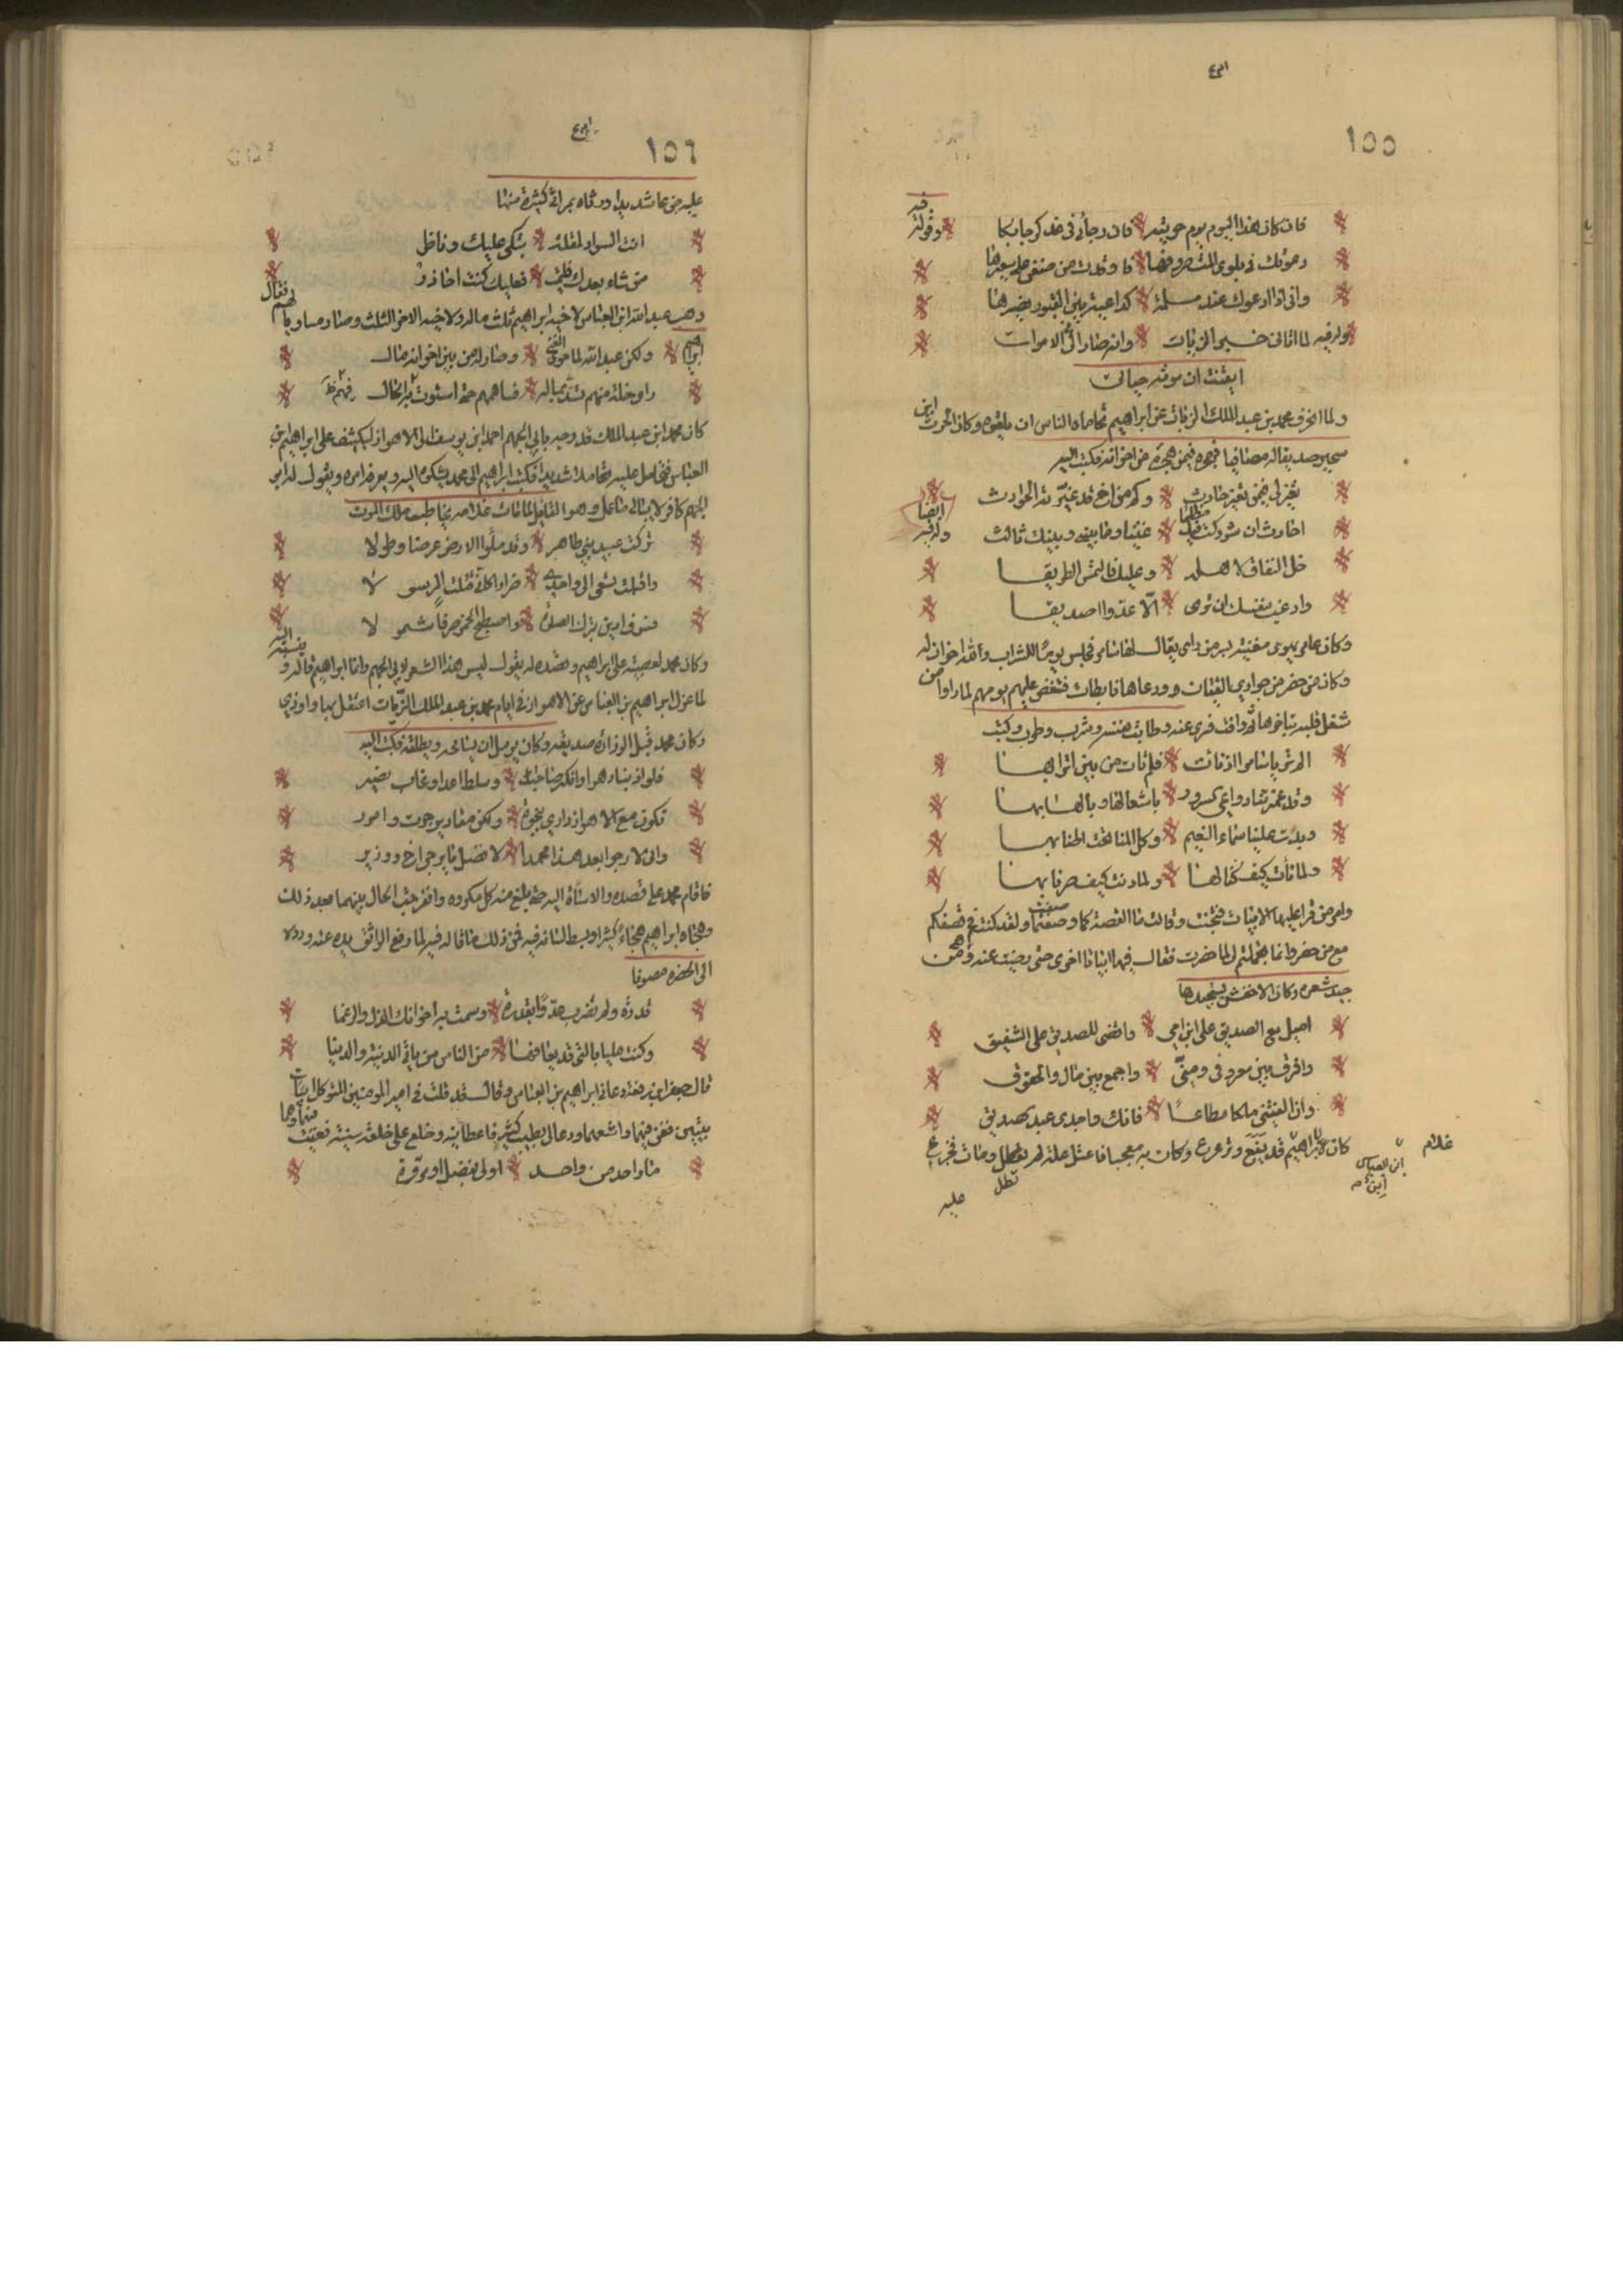 ١٥٥
فان كان هذا اليوم يوم حويته فان رجائي في غد كرجائكا وقولة فيه
دعوتك في بلوى المت صروفها فاوقدت من ضغن علي سعيرها
واني اذا ادعوك عند ملمة كداعية بين القبور نصيرها
وله فيه لما اتاني خبر الزيات وانه صار الى الاموات
ايقنت ان موته حياتي
ولما انحرف محمد بن عبد الملك الزيات عن ابراهيم تحاماه الناس ان يلقوه وكان الحرث ابن
صديقا له مصافيا فهجره فيمن هجره من اخوانه فكتب اليه
تغير لي فيمن تغير حارث وكم من اخ قد غيرته الحوادث
احارث ان شوركت فيك فطالما غنينا وما بيني وبينك ثالث وله فيه ايضا
خل النفاق لاهله وعليك فالتمس الطريقا
وارغب بنفسك ان ترى الا عدوا او صديقا
وكان يهوى مغنية بسر من راى يقال لها سامر فجلس يوما للشراب ومعه اخوان له
وكان من حضر من جواري القيان ودعاها فابطات فتنغص عليهم يومهم لما راوا من
شغل قلبه بتاخرها ثم وافت فسري عنه وطابت نفسه وشرب وطرب وكتب
الم ترنا يا سامر اذ نات فلم نات من بين اترابها
وقد غمرتنا دواعي السرور باشعالها وبالهابها
ومدت علينا سماء النعيم وكل المنا تحت اطنابها
ولما نأت كيف كنا لها ولما دنت كيف صرنا بها
وامر من قرا عليها الابيات فتجنت وقالت ما القصة كما وصفت ولقد كنتم في قصفكم
مع من حضر وانما تجملتم لي لما حضرت فقال فيها ابياتا اخرى حتى رضيت عنه ومن
جيد شعره وكان الاخفش يستجيدها
اميل مع الصديق على ابن امي واقضي للصديق على الشقيق
وافرق بين معروفي ومني واجمع بين مال والحقوق
وان الفيتني ملكا مطاعا فانك واجدي عبد الصديق
كان لابراهيم ابن العباس ابن قد يفع وترعرع وكان به معجبا فاعتل علة لم تطل ومات فجزع
غلام
عليه
١٥٦
عليه جزعا شديدا ورثاه بمراثي كثيرة منها
انت السواد لمقلة تبكي عليك وناظر
من شاء بعدك فليمت فعليك كنت احاذر
وهب عبد الله ابن العباس لاخيه ابراهيم ثلث ماله ولاخيه الاخر الثلث وصار مساويا لهم فقال
ابراهيم ولكن عبد الله لما حوى الغنى وصار له من بين اخوانه مال
راى خلة منهم تسد بماله فساهمهم حتى استوت بهم الحال
كان محمد ابن عبد الملك قد وجه بابي الجهم احمد ابن يوسف الى الاهواز ليكشف على ابراهيم ابن
العباس فتحامل عليه تحاملا شديدا فكتب ابراهيم الى محمد يشكوه اليه ويعرفه امره ويقول له ابو
الجهم كافر لا يبالي ما عمل وهو القايل لما مات غلامه يخاطب ملك الموت
تركت عبيد بني طاهر وقد ملؤا الارض عرضا وطولا
واقبلت تسعى الى واحدي ضرارا كان قتلت الرسولا
فسوف ادين بترك الصلاة واصطبح الخمر صرفا شمولا
وكان محمد لعصبيته على ابراهيم وقصده له يقول ليس هذا الشعر لابي الجهم وانما ابراهيم قاله وينسبه اليه
لما عزل ابراهيم بن العباس عن الاهواز في ايام محمد بن عبد الملك الزيات اعتقل بها واوذي
وكان محمد قبل الوزارة صديقه وكان يومل ان يسامحه ويطلقه فكتب اليه
فلو اذ نبا دهر وانكر صاحب وسلط اعداء وغاب نصير
تكون مع الاهواز داري بنجوة ولكن مقادير جرت وامور
واني لارجو بعد هذا محمدا لافضل ما يرجى اخ ووزير
فاقام محمد على قصده والاساة اليه حتى بلغ منه كل مكروه وانفرجت الحال بينهما بعد ذلك
وهجاه ابراهيم هجاءً كثيرا وبسط لسانه فيه فمن ذلك ما قاله فيه لما رفع الواثق يده عنه ورده
الى الحضرة مصونا
قدرت ولم تضرب عدوا بقدرة وسمت به اخوانك الذل والرغما
وكنت مليا بالتي قد يعافها من الناس من يابى الدنية والدنيا
قال جعفر ابن رفعة دعاني ابراهيم بن العباس وقال قد قلت في امير المومنين المتوكل ابيات
بيتين فغن فيهما واشعهما ودعا لي بطيب كثير فاعطانيه وخلع علي خلعة سنية فغنيت فيهما وهما
ما واحد من واحد اولى بفضل او مروة